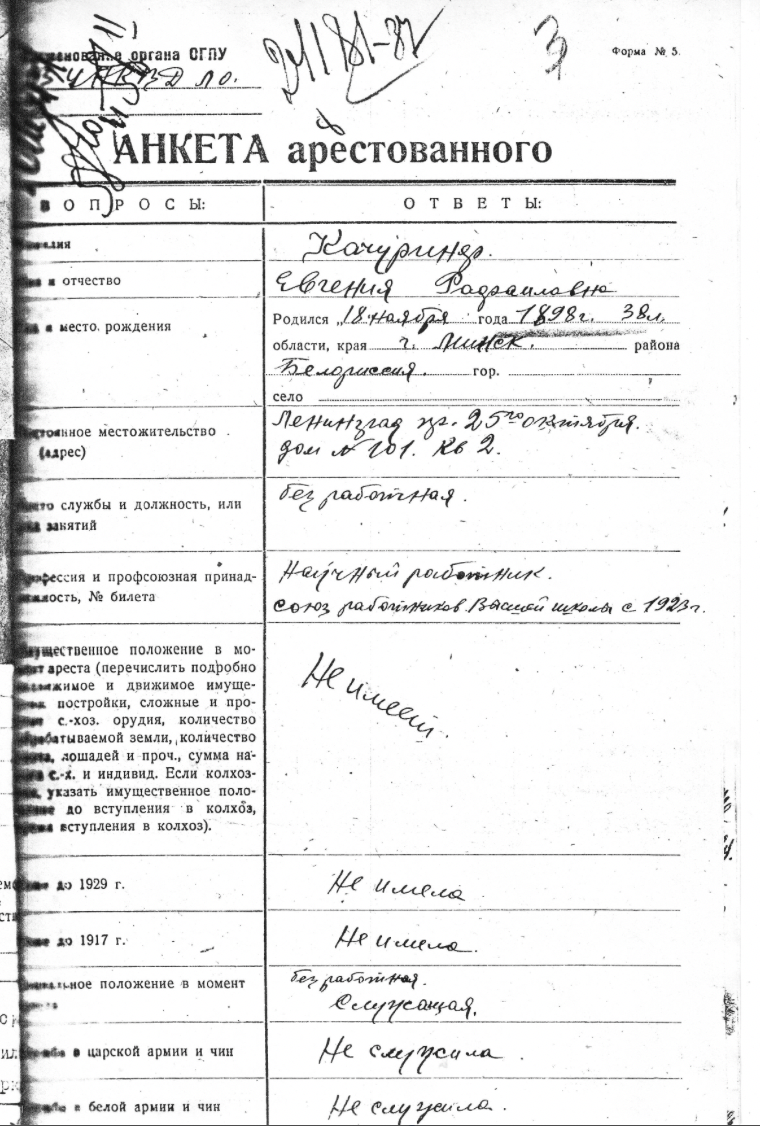 органа ОГПУ
УНКВД ЛО.
24181-37
3
Форма № 5.
АНКЕТА арестованного
ВОПРОСЫ:
ОТВЕТЫ:
Качуринер.
и отчество
Евгения Рафаиловна
и место рождения
Родился „18 ноября года 1898г. 38л.
области, края г. Минск. района
Белоруссия. гор.
село
местожительство
(адрес)
Ленинград пр. 25го октября.
дом № 101. Кв 2.
службы и должность, или
занятий
безработная.
и профсоюзная принад-
№ билета
Научный работник.
союз работников Высшей школы с 1923г.
положение в мо-
ареста (перечислить подробно
и движимое имуще-
постройки, сложные и про-
с.-хоз. орудия, количество
земли, количество
лошадей и проч., сумма на-
с.-х. и индивид. Если колхоз-
указать имущественное поло-
до вступления в колхоз,
вступления в колхоз).
Не имеет.
до 1929 г.
Не имела
до 1917 г.
Не имела.
положение в момент
безработная.
Служащая.
в царской армии и чин
Не служила.
в белой армии и чин
Не служила.